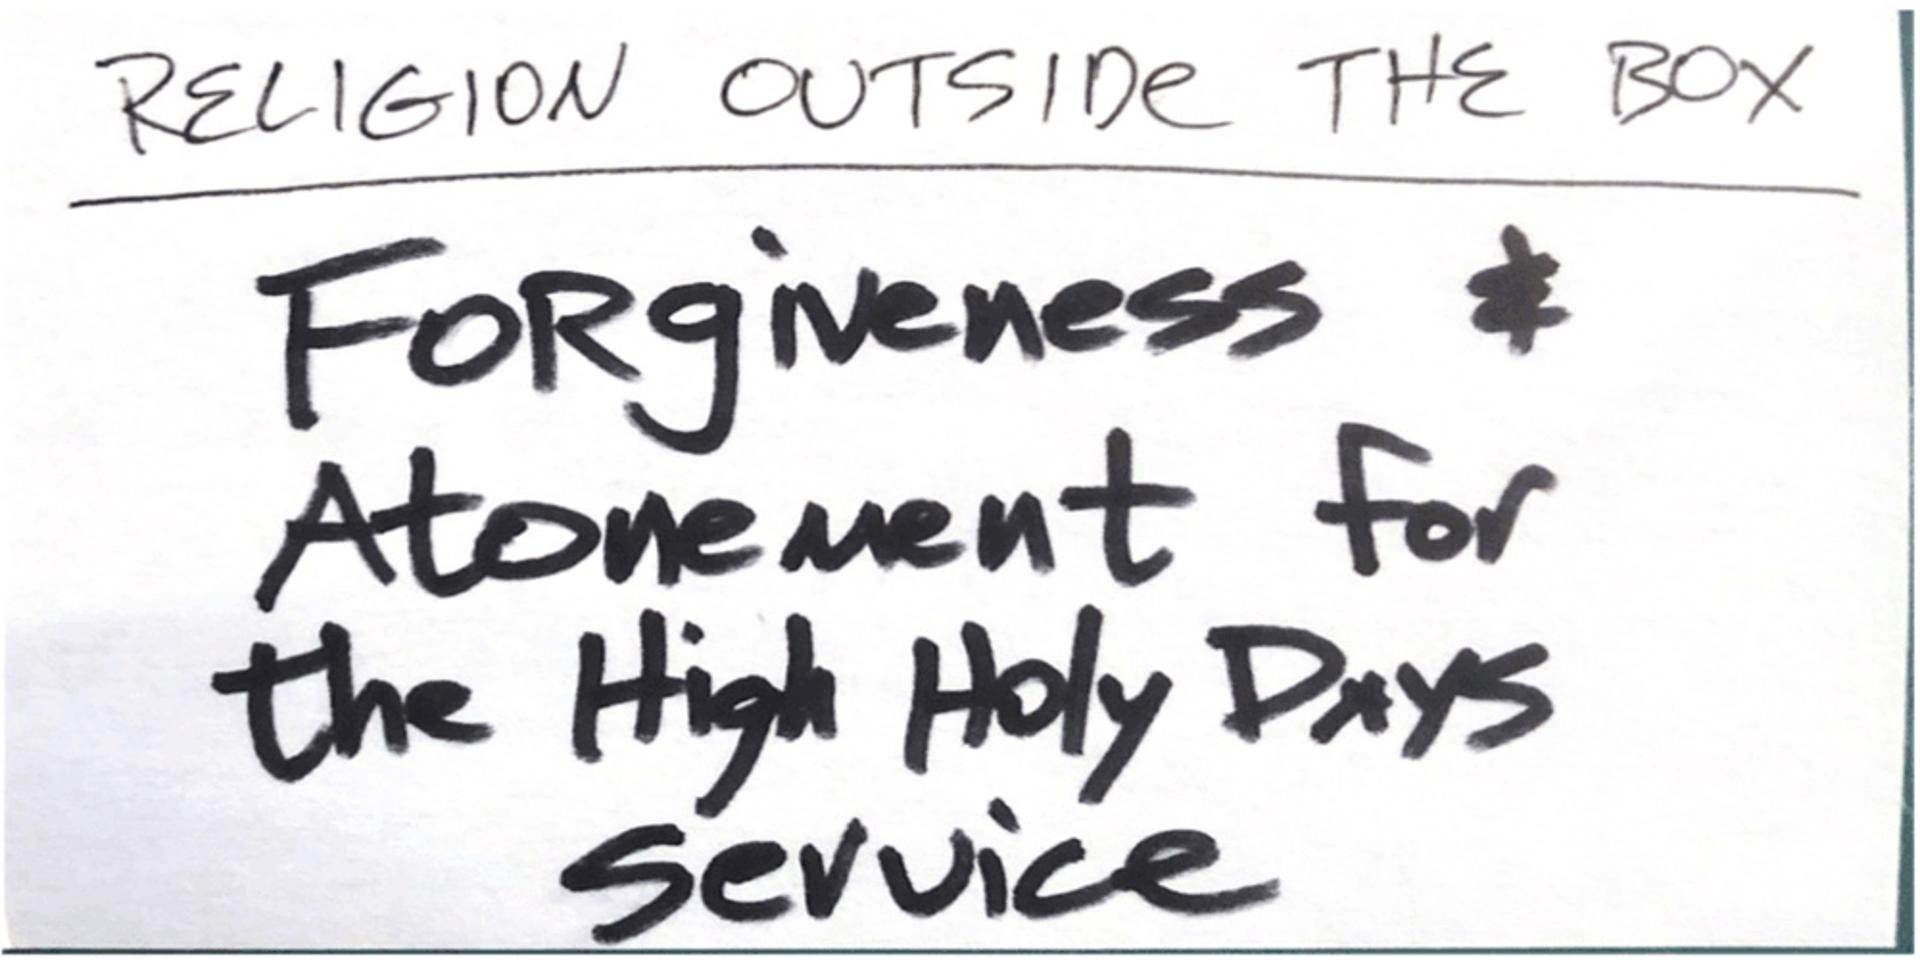 RELIGION OUTSIDE THE BOX
FORgiveness &
Atonement for
the High Holy Days
service